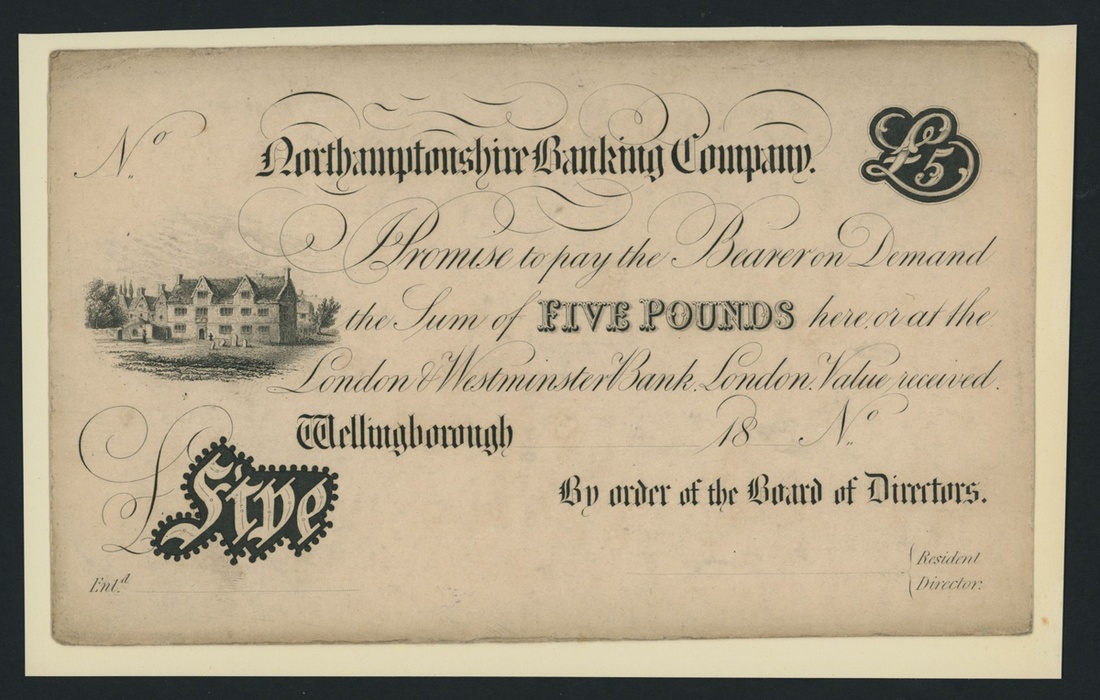 No.
Northamptonshire Banking Company.
£5
I Promise to pay the Bearer on Demand
the Sum of FIVE POUNDS here, or at the
London & Westminster Bank, London. Value received.
Wellingborough 18 No.
£ Five
By order of the Board of Directors.
Ent.d
Resident
Director.